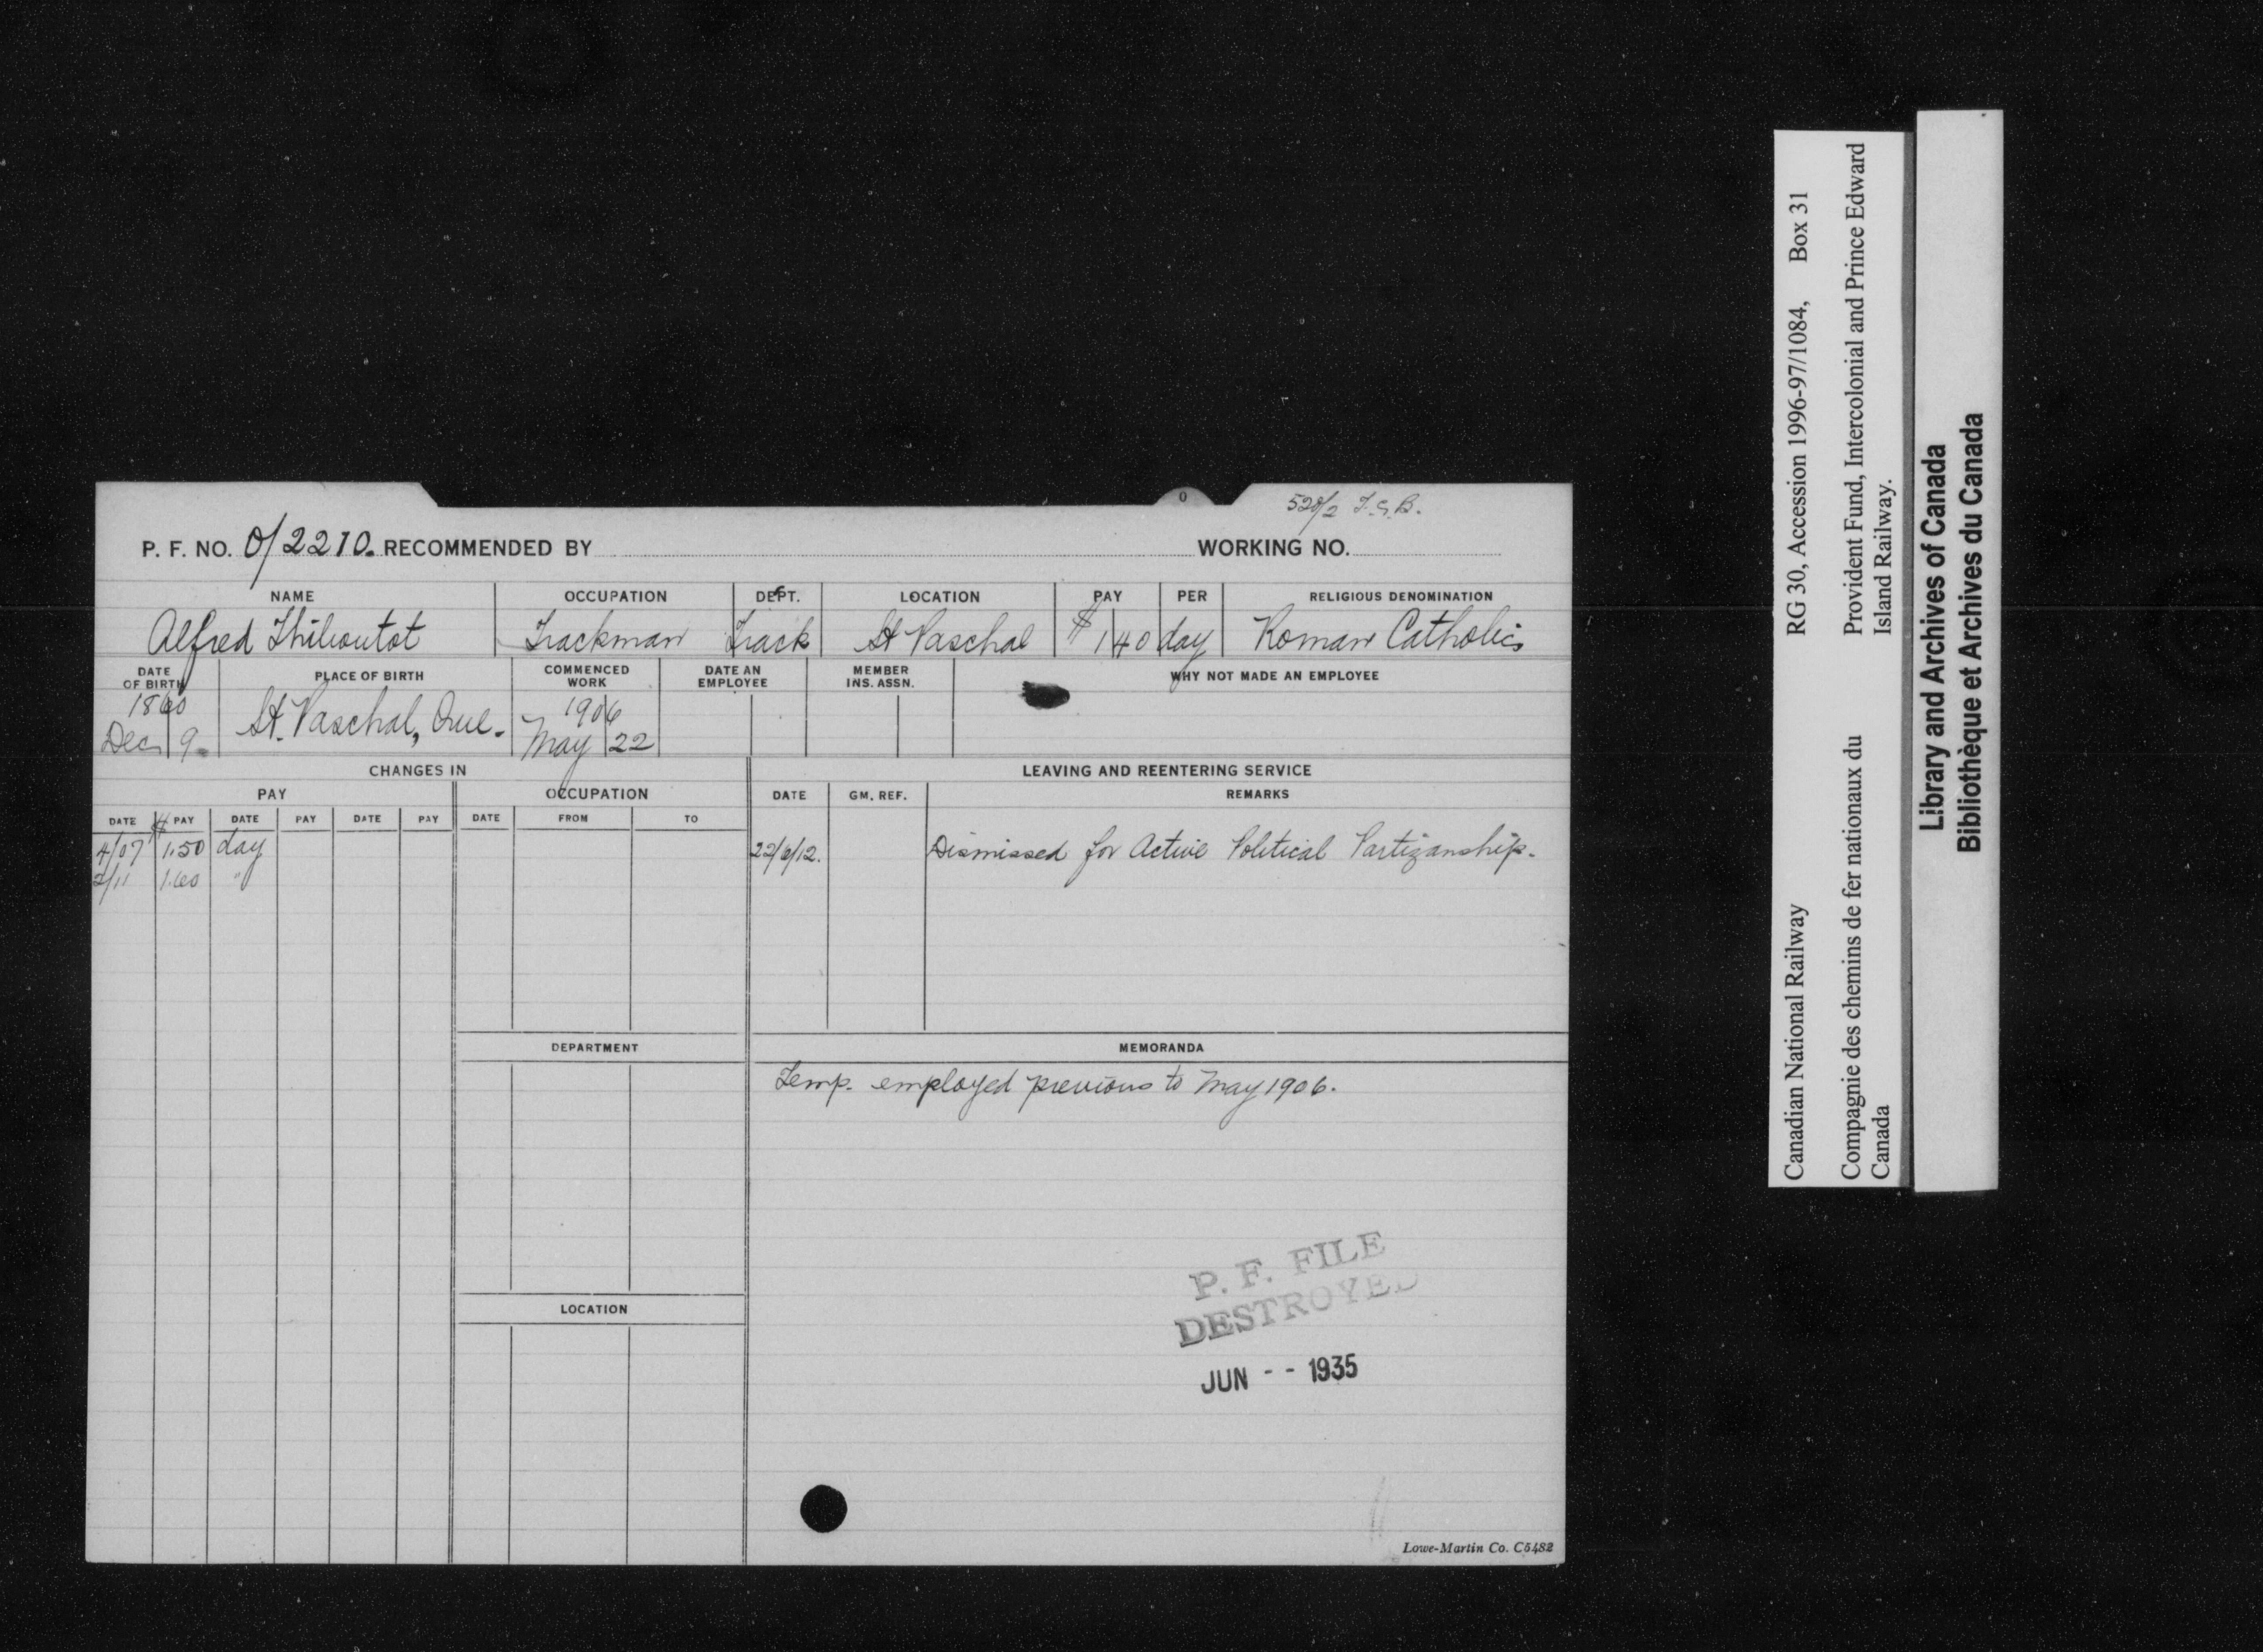 528/2 T.S.B.
P. F. NO. 0/2210. RECOMMENDED BY WORKING NO.
NAME OCCUPATION DEPT. LOCATION PAY PER RELIGIOUS DENOMINATION
Alfred Thiboutot Trackman Track St Paschal $1 40 day Roman Catholic
DATE OF BIRTH PLACE OF BIRTH COMMENCED WORK DATE AN EMPLOYEE MEMBER INS. ASSN. WHY NOT MADE AN EMPLOYEE
1860 1906
Dec 9. St. Paschal, Que. May 22
CHANGES IN LEAVING AND REENTERING SERVICE
PAY OCCUPATION DATE GM. REF. REMARKS
DATE $ PAY DATE PAY DATE PAY DATE FROM TO
4/07 1.50 day 22/6/12. Dismissed for Active Political Partizanship.
2/11 1.60 "
DEPARTMENT MEMORANDA
Temp. employed previous to May 1906.
P. F. FILE
DESTROYED
LOCATION
JUN -- 1935
Lowe-Martin Co. C5482
Canadian National Railway RG 30, Accession 1996-97/1084, Box 31
Compagnie des chemins de fer nationaux du Provident Fund, Intercolonial and Prince Edward
Canada Island Railway.
Library and Archives of Canada
Bibliothèque et Archives du Canada